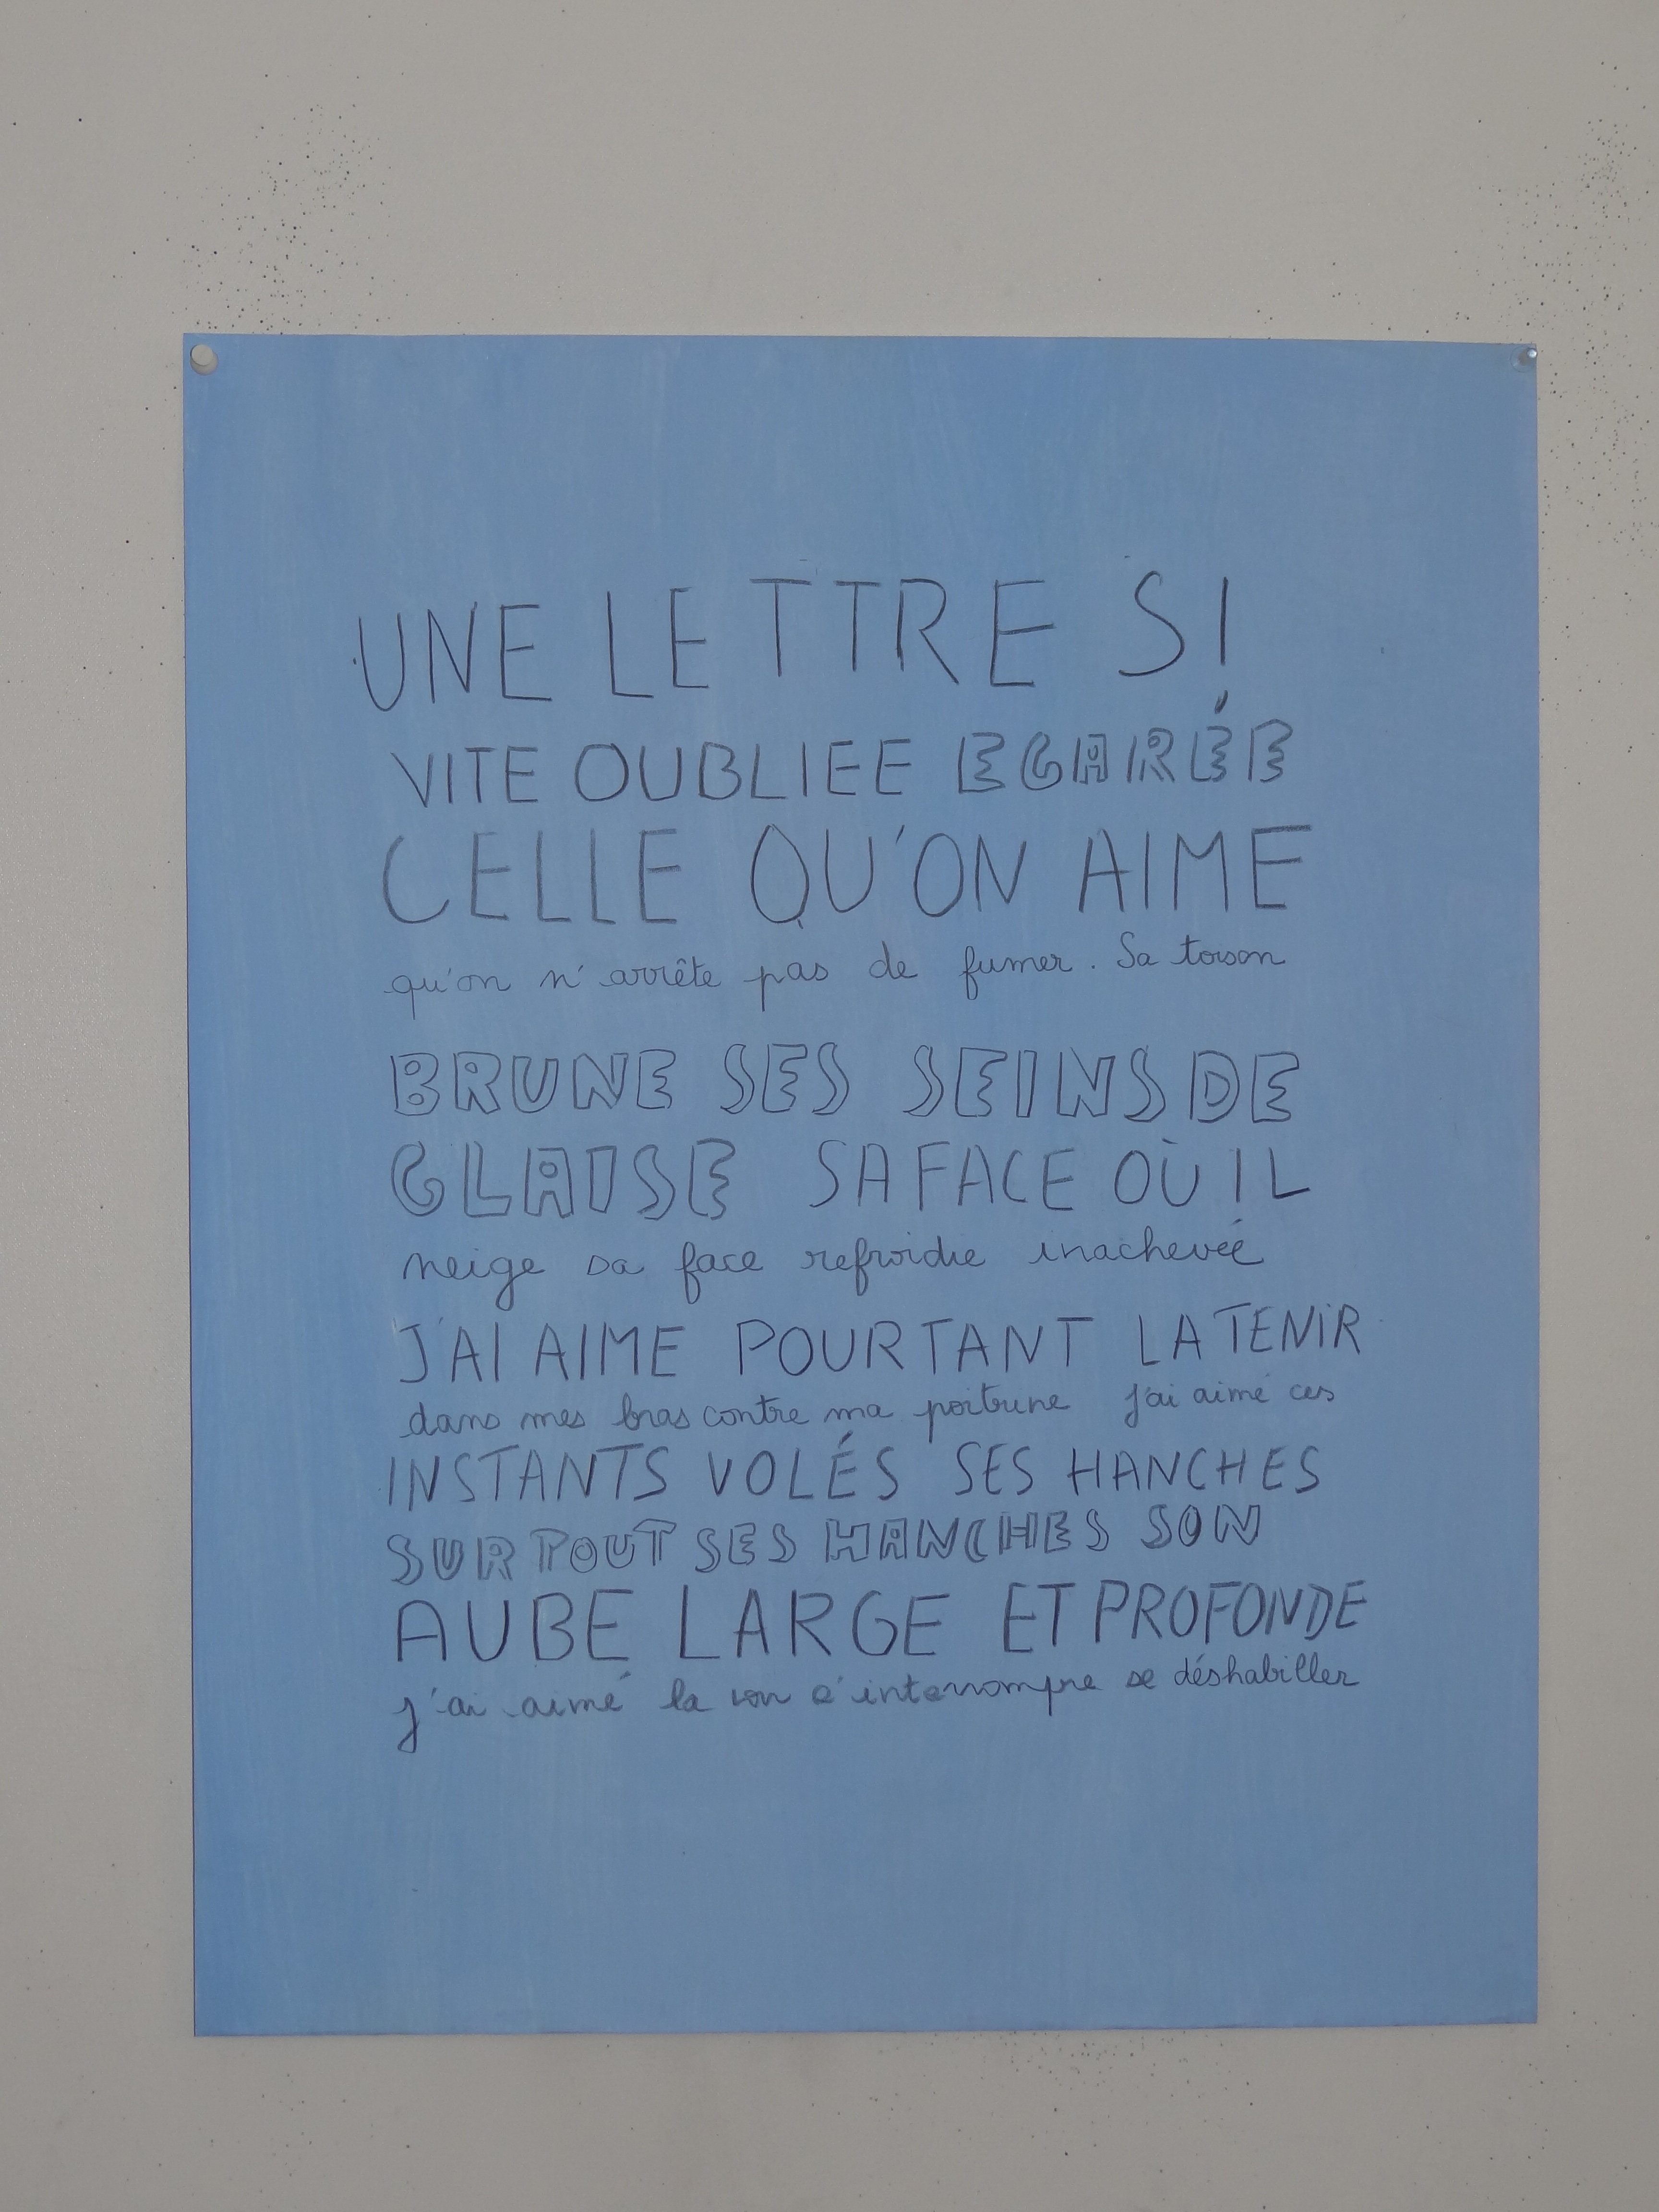 UNE LETTRE SI
VITE OUBLIEE EGARÉE
CELLE QU'ON AIME
qu'on n'arrête pas de fumer. Sa toison
BRUNE SES SEINS DE
GLAISE SA FACE OÙ IL
neige sa face refroidie inachevée
J'AI AIME POURTANT LA TENIR
dans mes bras contre ma poitrine j'ai aimé ces
INSTANTS VOLÉS SES HANCHES
SURTOUT SES HANCHES SON
AUBE LARGE ET PROFONDE
j'ai aimé la voir s'interrompre se déshabiller